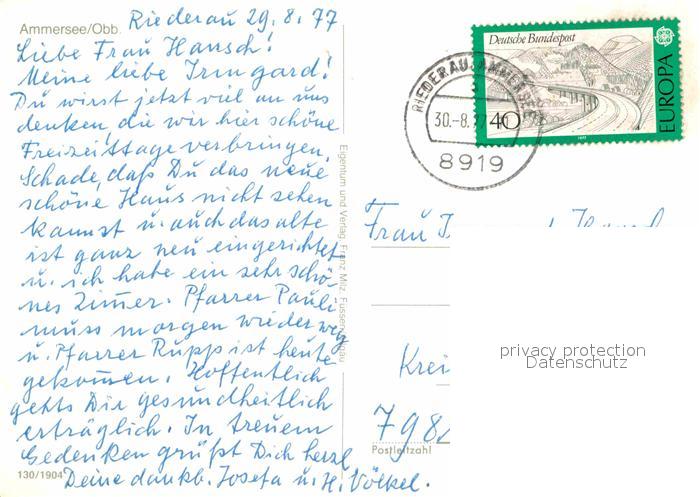 Riederau 29.8.77
Ammersee/Obb.
Liebe Frau Hansch!
Meine liebe Irmgard!
Du wirst jetzt viel an uns
denken, die wir hier schöne
Freizeittage verbringen.
Schade, daß Du das neue
schöne Haus nicht sehen
kannst u. auch das alte
ist ganz neu eingerichtet
u. ich habe ein sehr schö-
nes Zimmer. Pfarrer Pauli
muss morgen wieder weg
u. Pfarrer Rupp ist heute
gekommen. Hoffentlich
gehts Dir gesundheitlich
erträglich. In treuem
Gedenken grüßt Dich herzl.
Deine dankb. Josefa u. H. Völkel.
130/1904
Eigentum und Verlag Franz Milz, Füssen
Deutsche Bundespost
EUROPA
40
1977
RIEDERAU, AMMERSEE
30.-8.77
8919
Frau
Krei
798
Postleitzahl
privacy protection
Datenschutz